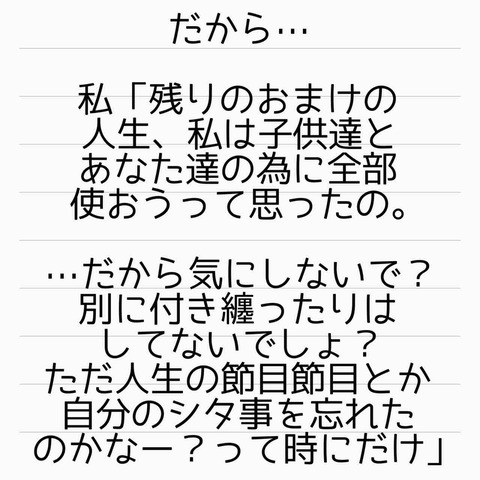 だから…
私「残りのおまけの
人生、私は子供達と
あなた達の為に全部
使おうって思ったの。
…だから気にしないで？
別に付き纏ったりは
してないでしょ？
ただ人生の節目節目とか
自分のシタ事を忘れた
のかなー？って時にだけ」